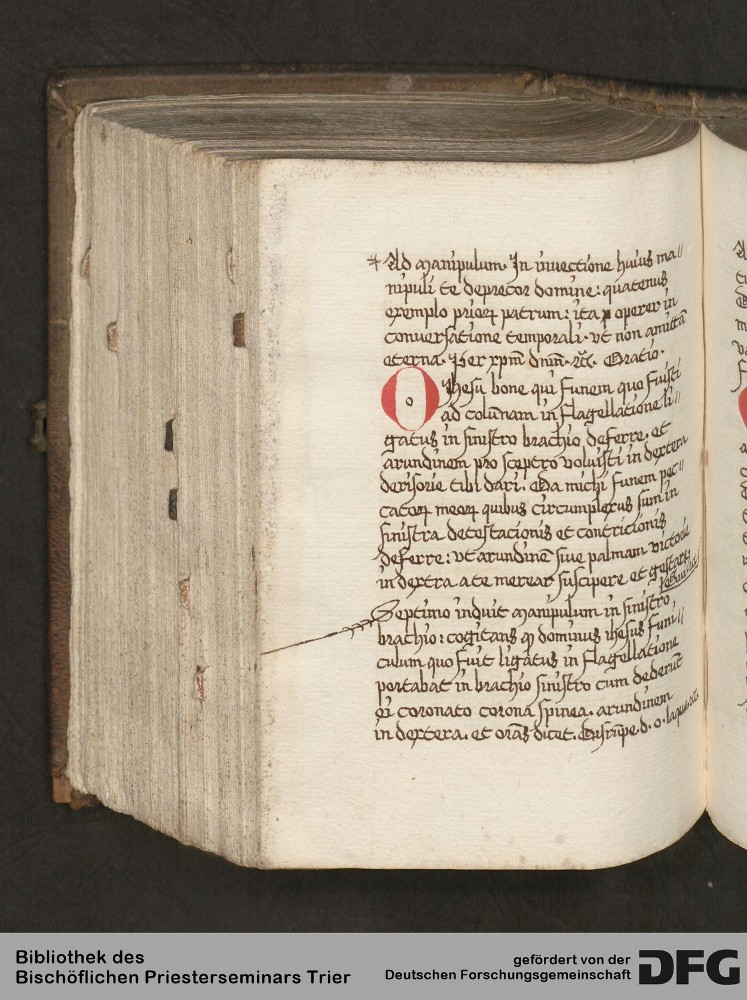 Ad manipulum. In invectione huius ma//
nipuli te deprecor domine: quatenus
exemplo priorꝝ patrum: ita operer in
conversatione temporali. vt non amittā
eterna. Per xpm̄ dnm̄. Oratio.
O Ihesu bone qui funem quo fuisti
ad colūnam in flagellatione li//
gatus in sinistro brachio deferre. et
arundinem pro sceptro voluisti in dextera
derisorie tibi dari. Da michi funem pec//
catorꝝ meorꝝ quibus circumplexus sum in
sinistra detestacionis et contricionis
deferre: vt arundinē sive palmam victorie
in dextra a te merear suscipere et gestare
Septimo induit manipulum in sinistro
brachio: cogitans ꝙ dominus ihesus funi//
culum quo fuit ligatus in flagellatione
portabat in brachio sinistro cum dederūt
ei coronato corona spinea. arundinem
in dextera. et orās dicet. Disrūpe d. o.
Bibliothek des
Bischöflichen Priesterseminars Trier
gefördert von der
Deutschen Forschungsgemeinschaft
DFG